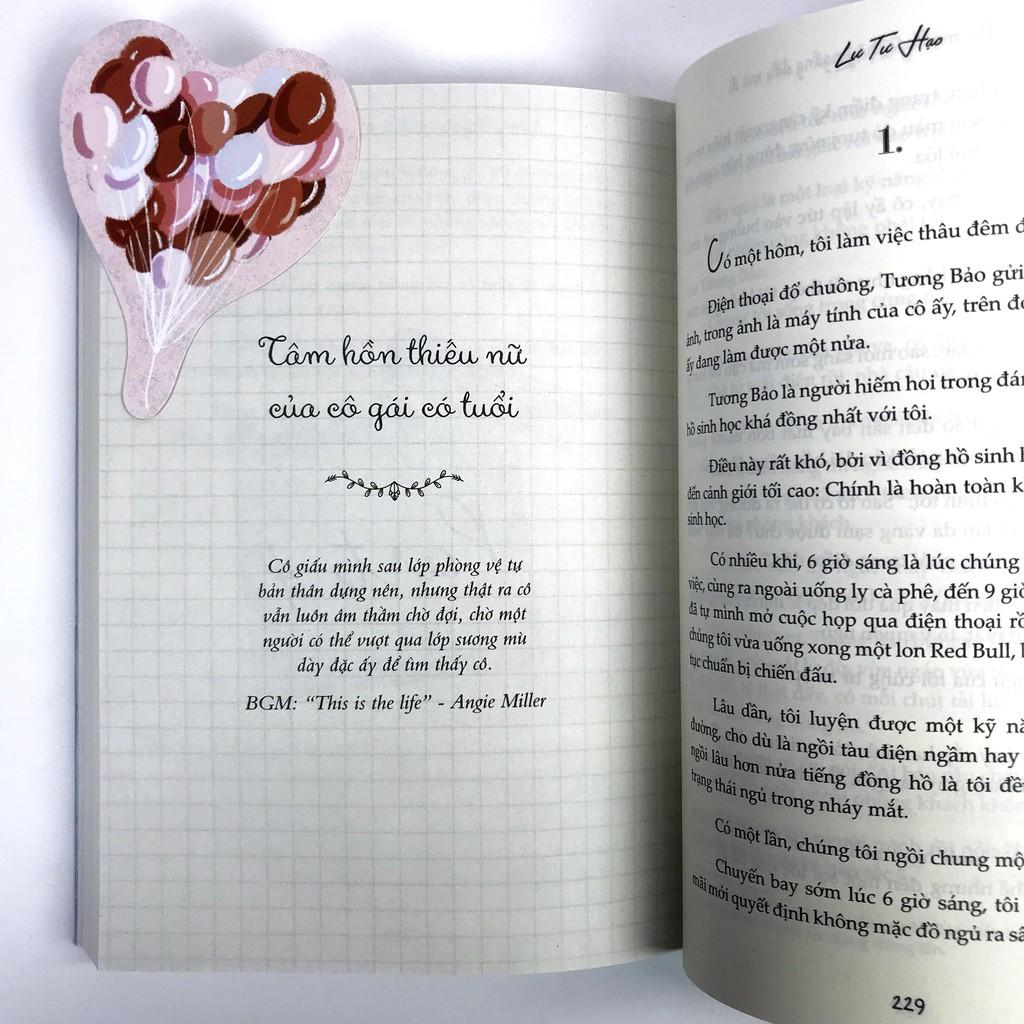 Tâm hồn thiếu nữ
của cô gái có tuổi
Cô giấu mình sau lớp phòng vệ tự
bản thân dựng nên, nhưng thật ra cô
vẫn luôn âm thầm chờ đợi, chờ một
người có thể vượt qua lớp sương mù
dày đặc ấy để tìm thấy cô.
BGM: “This is the life” - Angie Miller
Lư Tư Hạo
1.
Có một hôm, tôi làm việc thâu đêm
Điện thoại đổ chuông, Tương Bảo gửi
ảnh, trong ảnh là máy tính của cô ấy, trên
ấy đang làm được một nửa.
Tương Bảo là người hiếm hoi trong
hồ sinh học khá đồng nhất với tôi.
Điều này rất khó, bởi vì đồng hồ sinh
đến cảnh giới tối cao: Chính là hoàn toàn
sinh học.
Có nhiều khi, 6 giờ sáng là lúc chúng
việc, cùng ra ngoài uống ly cà phê, đến 9 giờ
đã tự mình mở cuộc họp qua điện thoại
chúng tôi vừa uống xong một lon Red Bull,
tục chuẩn bị chiến đấu.
Lâu dần, tôi luyện được một kỹ
đường, cho dù là ngồi tàu điện ngầm hay
ngồi lâu hơn nửa tiếng đồng hồ là tôi
trạng thái ngủ trong nháy mắt.
Có một lần, chúng tôi ngồi chung
Chuyến bay sớm lúc 6 giờ sáng, tôi
mãi mới quyết định không mặc đồ ngủ ra
229